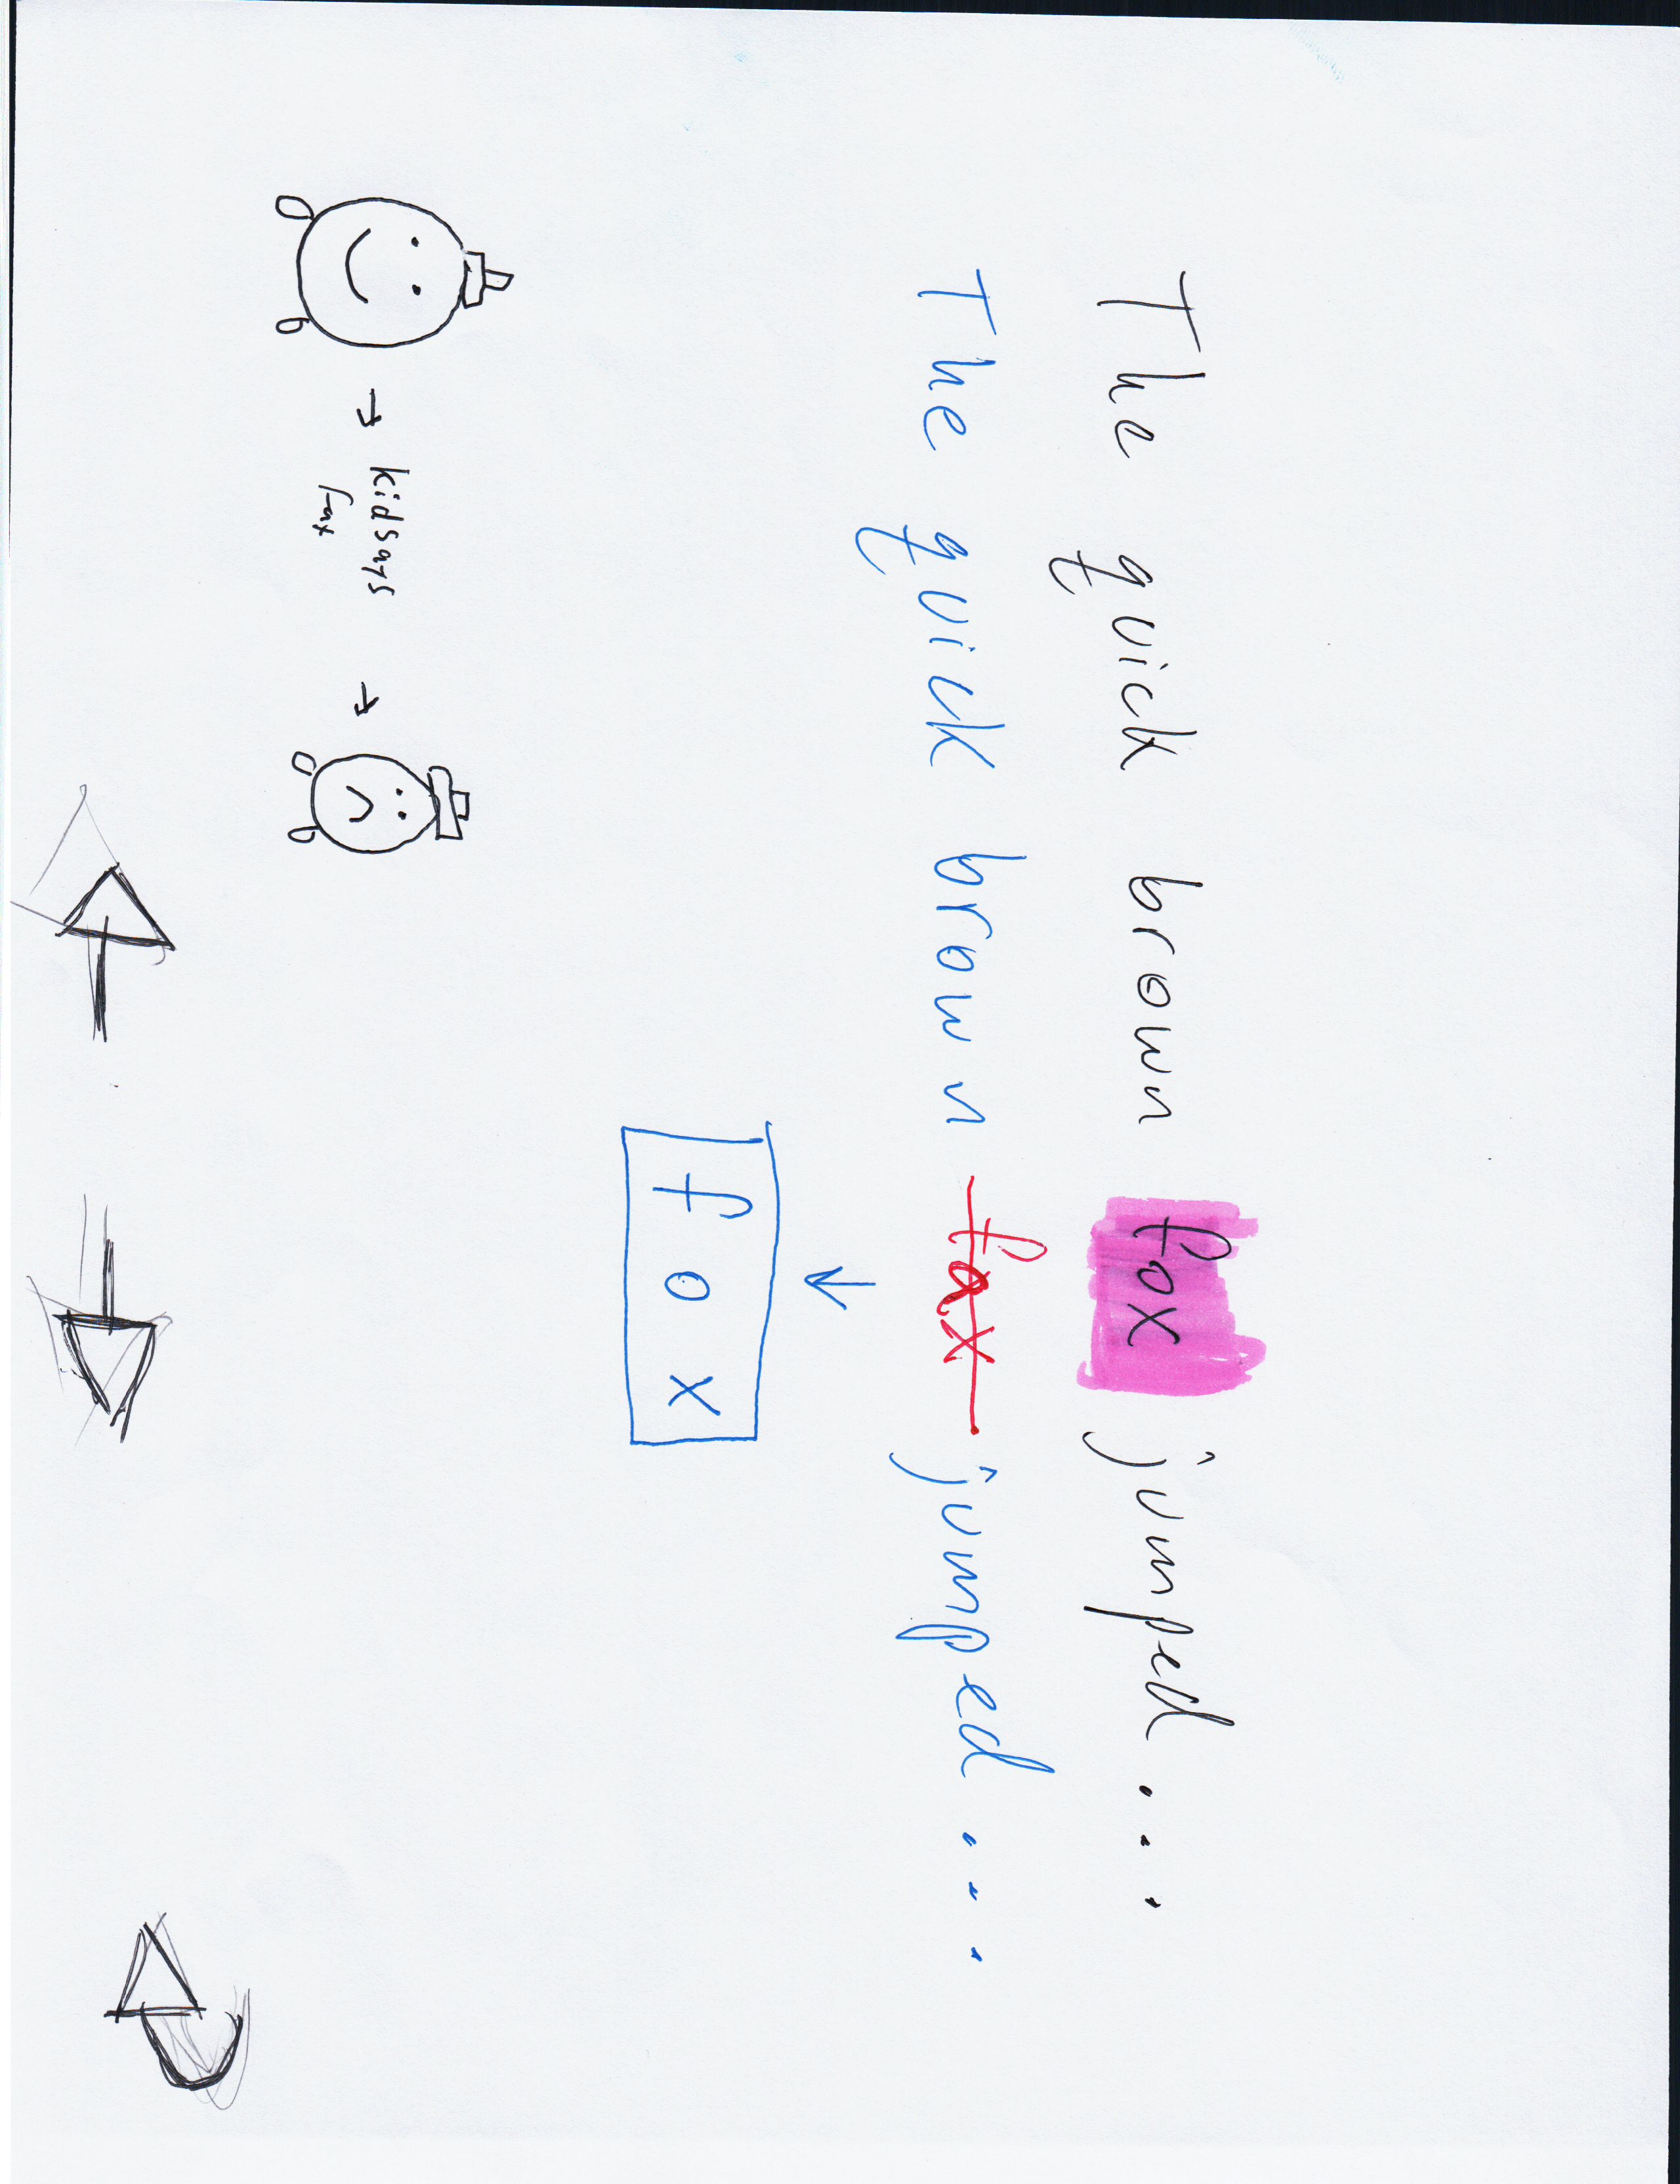 The quick brown fox jumped...
The quick brown fax jumped...
fox
kid says
fax